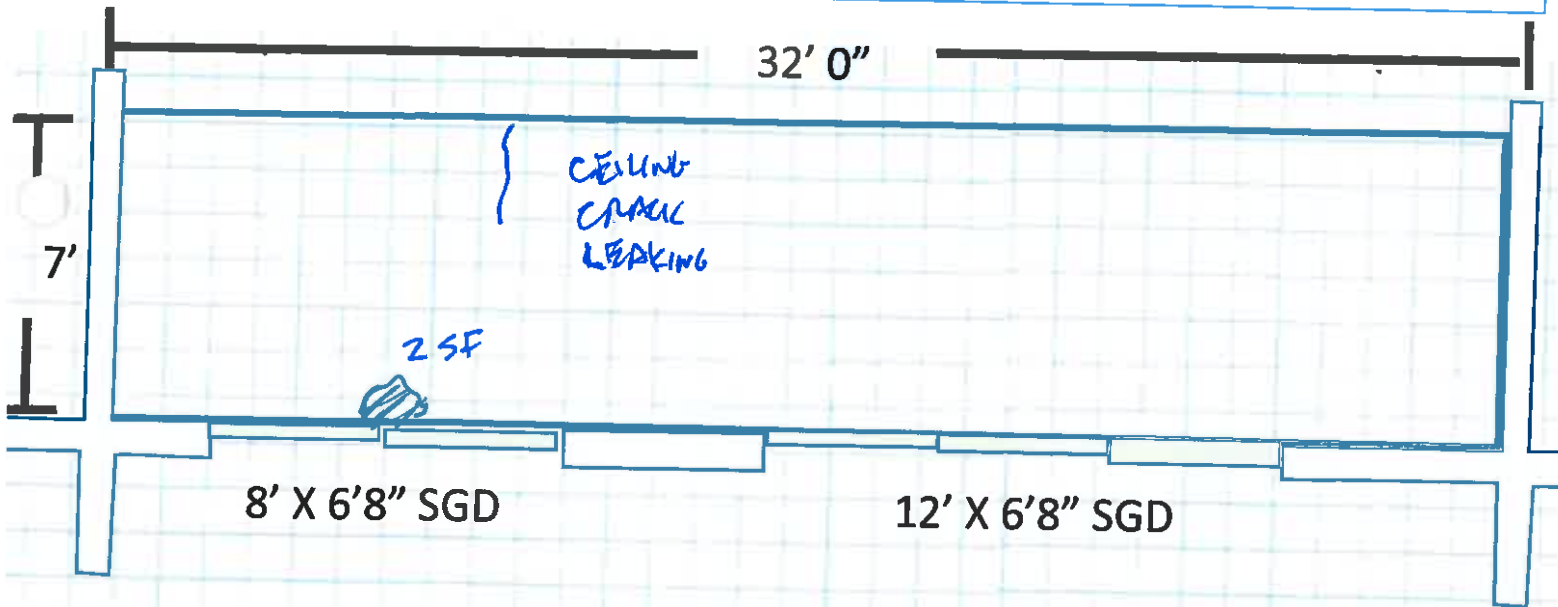 32' 0"
CEILING
CRACK
LEAKING
7'
2 SF
8' X 6'8" SGD
12' X 6'8" SGD